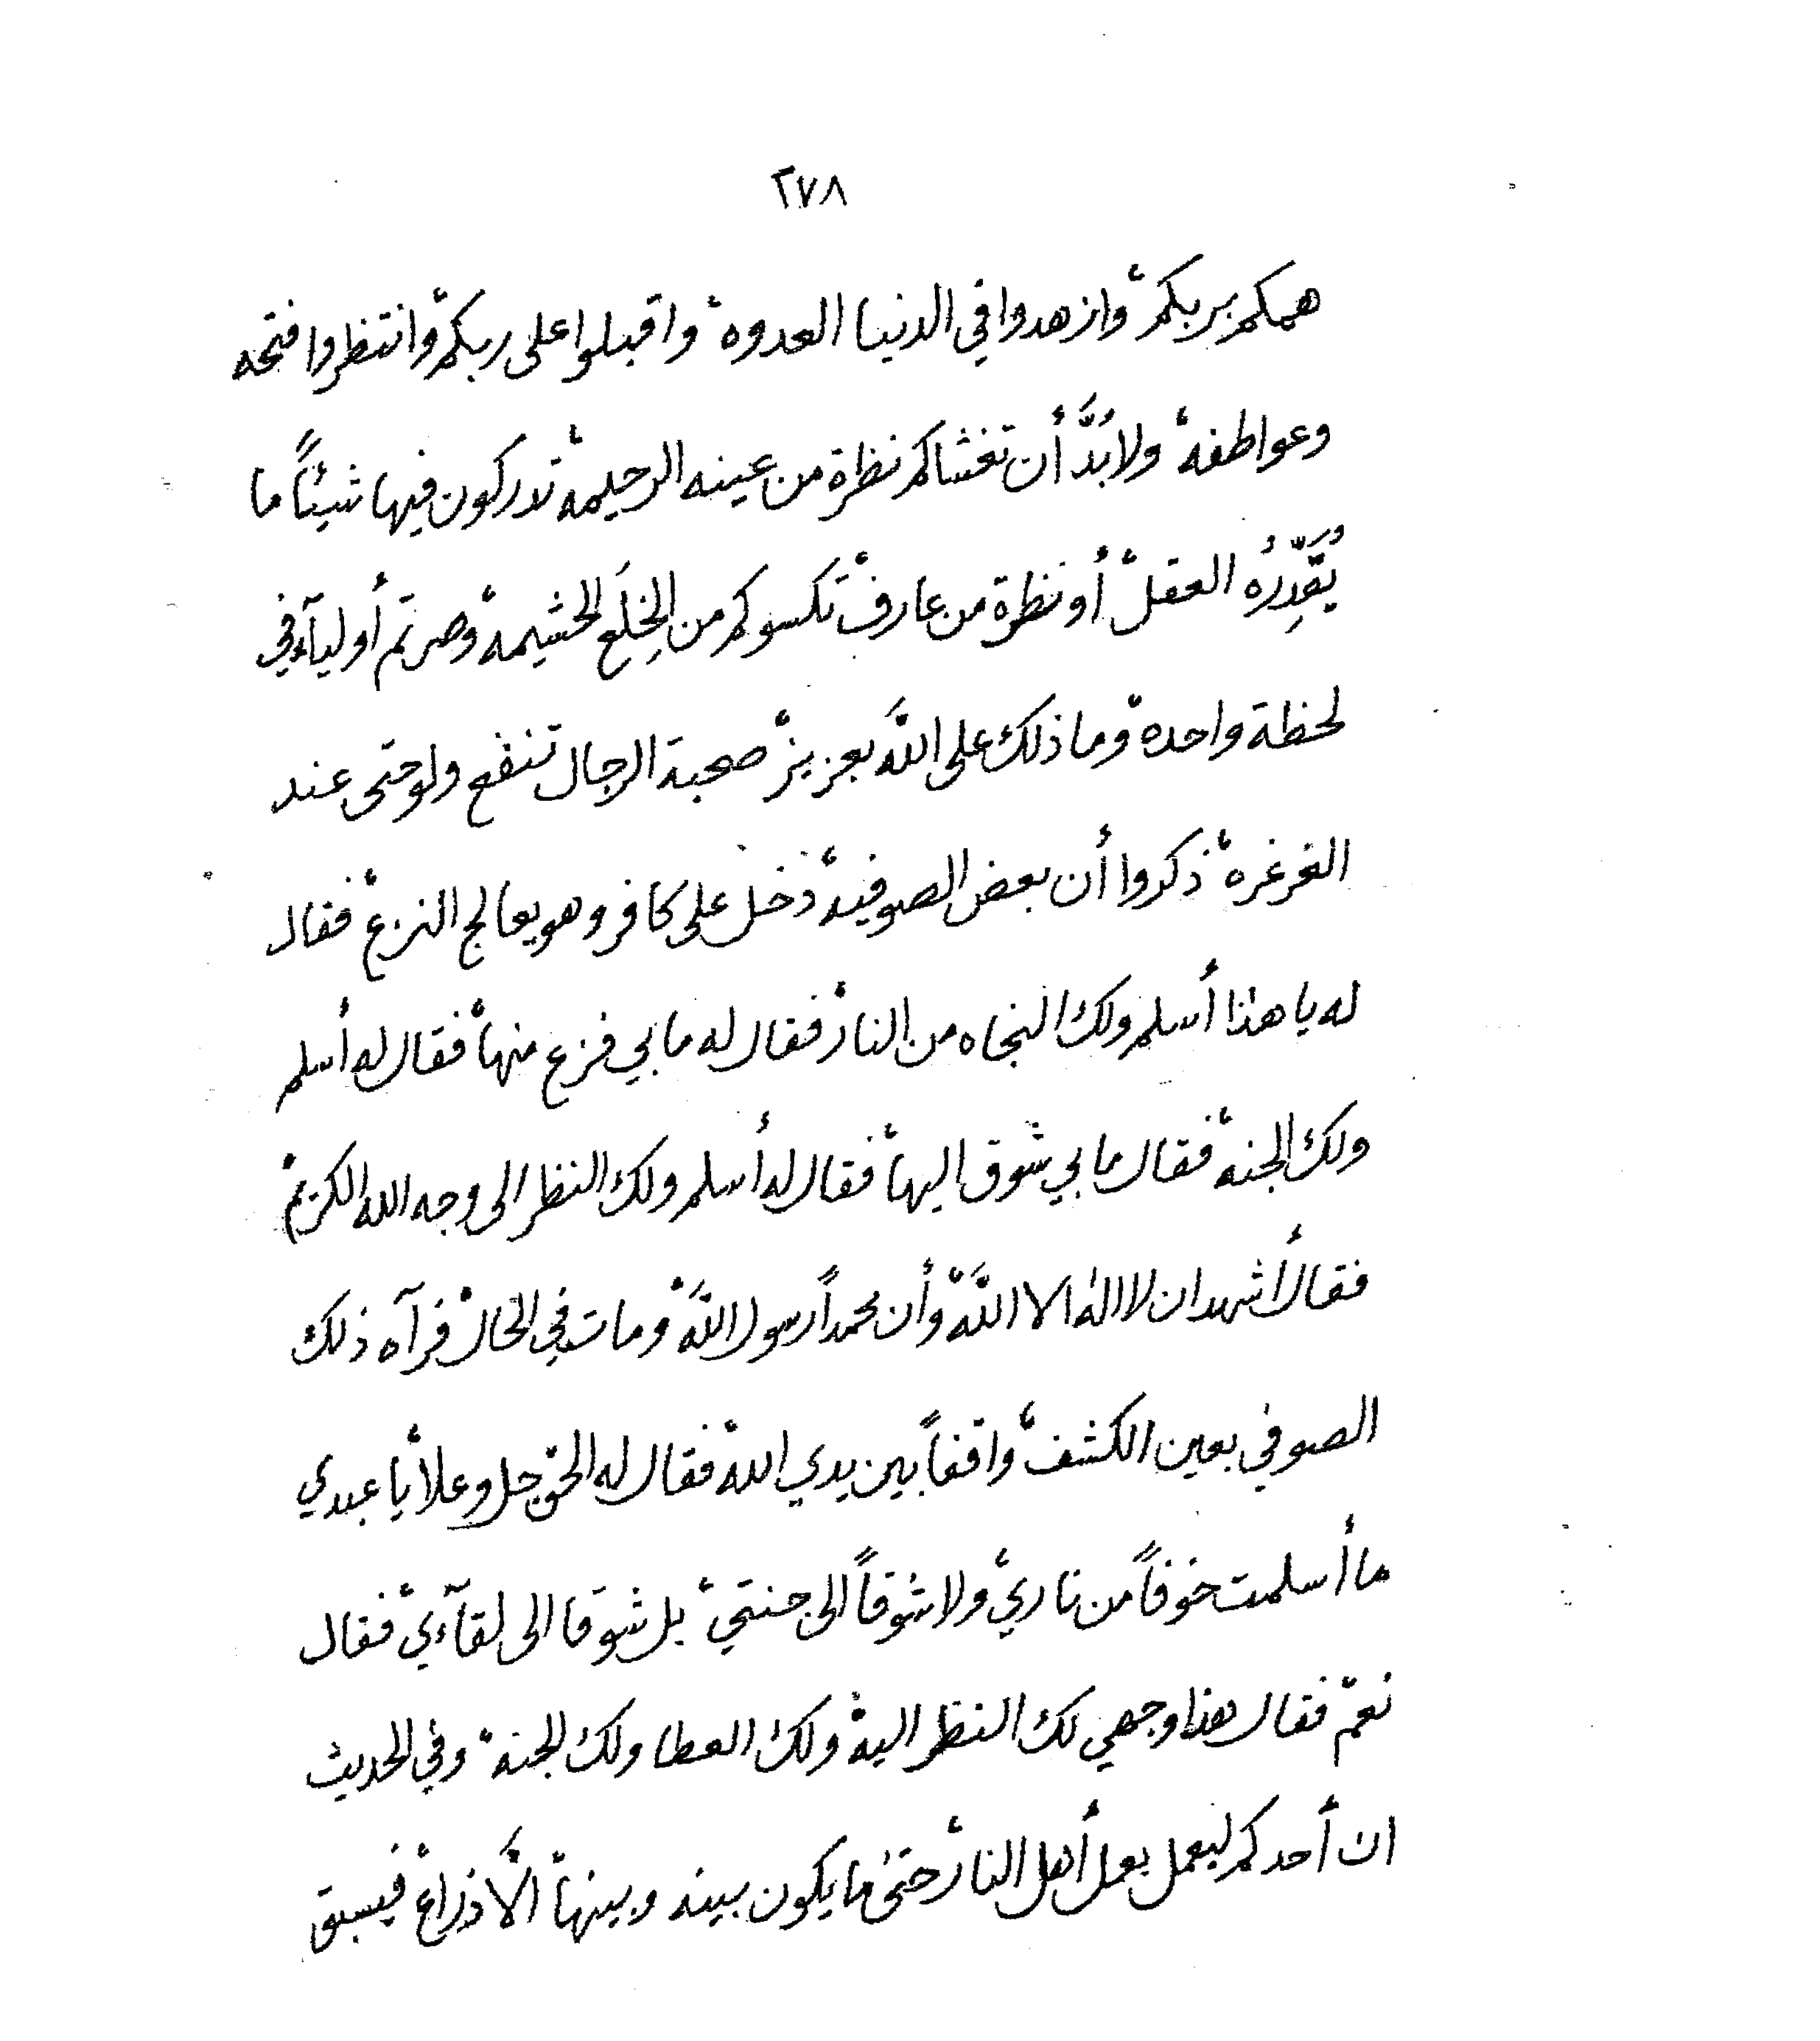 ٢٧٨
همكم بربكم، وازهدوا في الدنيا العدوه، واقبلوا على ربكم، وانتظروا فتحه
وعواطفه، ولا بُدَّ أن تغشاكم نظرة من عينه الرحيمه، تدركون فيها شيئاً ما
يُقَدِّرُه العقل، أو نظرة من عارف، تكسوكم من الخِلَع الحشيمه، وصرتم أوليآء في
لحظة واحده، وما ذلك على اللَّه بعزيز، صحبة الرجال تنفع ولو حتى عند
الغرغره، ذكروا أن بعض الصوفيه، دخل على كافر وهو يعالج النزع، فقال
له يا هذا أسلم ولك النجاه من النار، فقال له ما بي فزع منها، فقال له أسلم
ولك الجنه، فقال ما بي شوق اليها، فقال له أسلم ولك النظر الى وجه الله الكريم،
فقال أشهد ان لا اله الا اللَّه، وأن محمداً رسول اللَّه، ومات في الحال، فرآه ذلك
الصوفي بعين الكشف، واقفاً بين يدي الله، فقال له الحق جل وعلا، يا عبدي
ما أسلمت خوفاً من ناري، ولا شوقاً الى جنتي، بل شوقا الى لقآءي، فقال
نعم، فقال هذا وجهي لك النظر اليه، ولك العطا ولك الجنه، وفي الحديث
ان أحدكم ليعمل بعمل أهل النار، حتى ما يكون بينه وبينها، الَّا ذراع، فيسبق